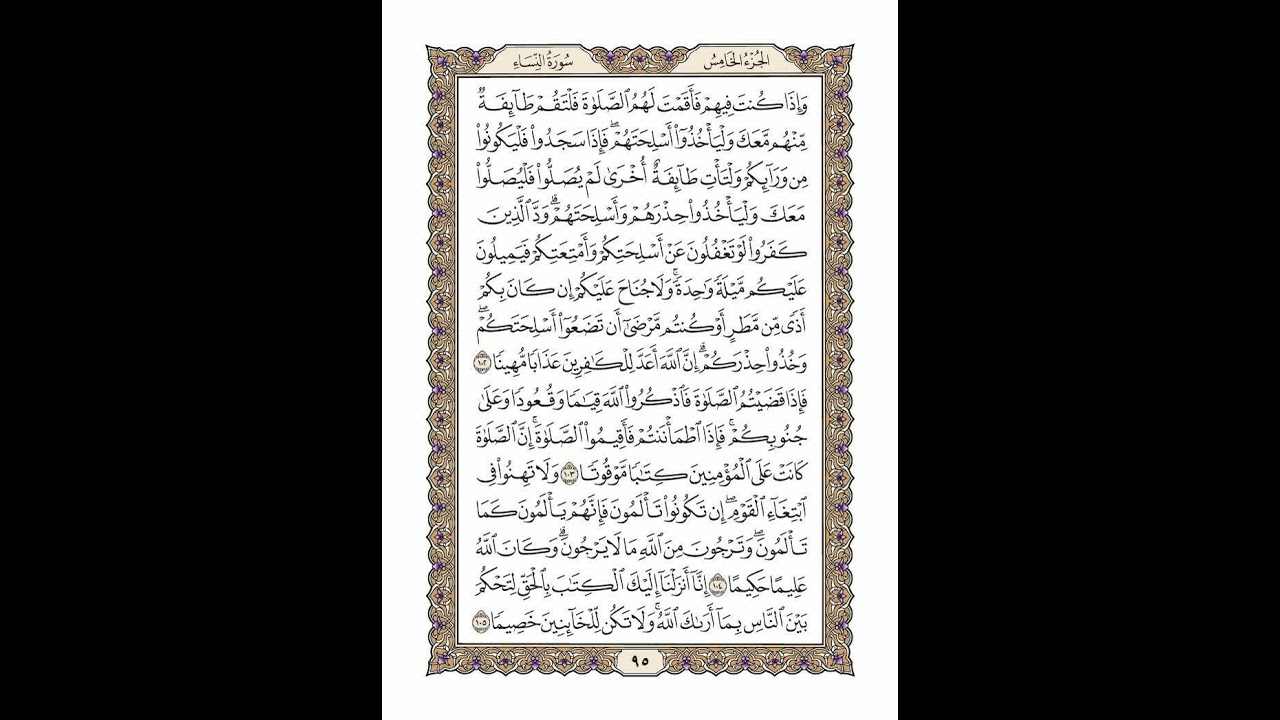 الجزء الخامس
سورة النساء
وَإِذَا كُنتَ فِيهِمْ فَأَقَمْتَ لَهُمُ ٱلصَّلَوٰةَ فَلْتَقُمْ طَآئِفَةٌ
مِّنْهُم مَّعَكَ وَلْيَأْخُذُوٓا۟ أَسْلِحَتَهُمْۖ فَإِذَا سَجَدُوا۟ فَلْيَكُونُوا۟
مِن وَرَآئِكُمْ وَلْتَأْتِ طَآئِفَةٌ أُخْرَىٰ لَمْ يُصَلُّوا۟ فَلْيُصَلُّوا۟
مَعَكَ وَلْيَأْخُذُوا۟ حِذْرَهُمْ وَأَسْلِحَتَهُمْۗ وَدَّ ٱلَّذِينَ
كَفَرُوا۟ لَوْ تَغْفُلُونَ عَنْ أَسْلِحَتِكُمْ وَأَمْتِعَتِكُمْ فَيَمِيلُونَ
عَلَيْكُم مَّيْلَةً وَٰحِدَةًۚ وَلَا جُنَاحَ عَلَيْكُمْ إِن كَانَ بِكُمْ
أَذًى مِّن مَّطَرٍ أَوْ كُنتُم مَّرْضَىٰٓ أَن تَضَعُوٓا۟ أَسْلِحَتَكُمْۖ
وَخُذُوا۟ حِذْرَكُمْۗ إِنَّ ٱللَّهَ أَعَدَّ لِلْكَٰفِرِينَ عَذَابًا مُّهِينًا ١٠٢
فَإِذَا قَضَيْتُمُ ٱلصَّلَوٰةَ فَٱذْكُرُوا۟ ٱللَّهَ قِيَٰمًا وَقُعُودًا وَعَلَىٰ
جُنُوبِكُمْۚ فَإِذَا ٱطْمَأْنَنتُمْ فَأَقِيمُوا۟ ٱلصَّلَوٰةَۚ إِنَّ ٱلصَّلَوٰةَ
كَانَتْ عَلَى ٱلْمُؤْمِنِينَ كِتَٰبًا مَّوْقُوتًا ١٠٣ وَلَا تَهِنُوا۟ فِى
ٱبْتِغَآءِ ٱلْقَوْمِۖ إِن تَكُونُوا۟ تَأْلَمُونَ فَإِنَّهُمْ يَأْلَمُونَ كَمَا
تَأْلَمُونَۖ وَتَرْجُونَ مِنَ ٱللَّهِ مَا لَا يَرْجُونَۗ وَكَانَ ٱللَّهُ
عَلِيمًا حَكِيمًا ١٠٤ إِنَّآ أَنزَلْنَآ إِلَيْكَ ٱلْكِتَٰبَ بِٱلْحَقِّ لِتَحْكُمَ
بَيْنَ ٱلنَّاسِ بِمَآ أَرَىٰكَ ٱللَّهُۚ وَلَا تَكُن لِّلْخَآئِنِينَ خَصِيمًا ١٠٥
٩٥